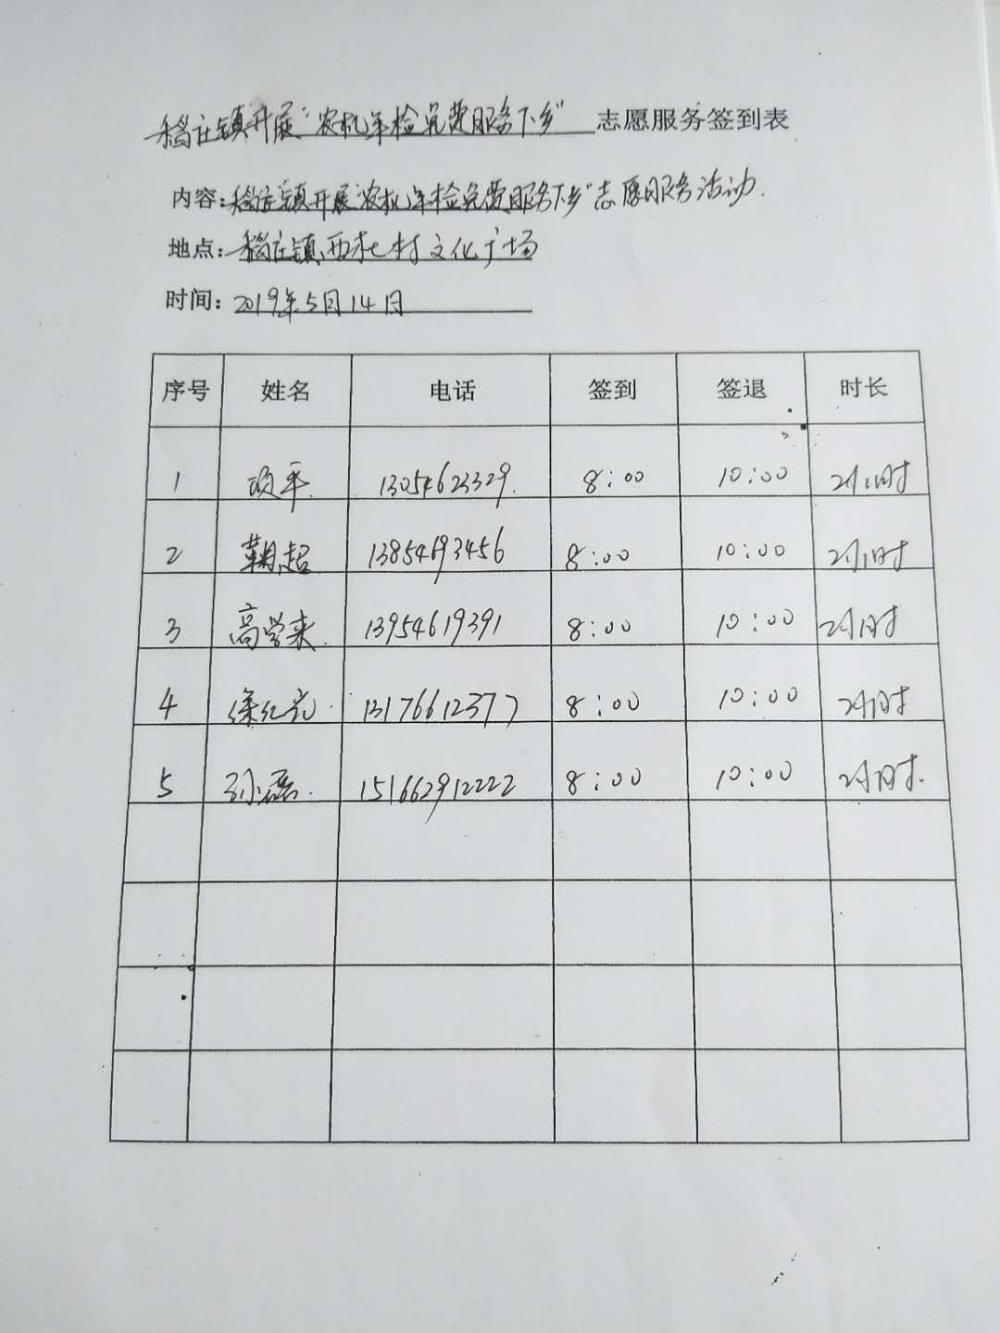 稻庄镇开展"农机年检免费服务下乡" 志愿服务签到表
内容:稻庄镇开展"农机年检免费服务下乡"志愿服务活动.
地点:稻庄镇西杜村文化广场
时间:2019年5月14日
序号 姓名 电话 签到 签退 时长
1 项平 13054623329 8:00 10:00 2小时
2 超 13854693456 8:00 10:00 2小时
3 高学来 13954619391 8:00 10:00 2小时
4 徐红 13176612377 8:00 10:00 2小时
5 孙磊 151662912222 8:00 10:00 2小时.